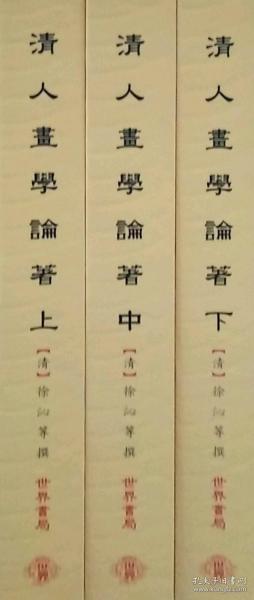 清人畫學論著上
【清】徐沁等撰
世界書局
世界
清人畫學論著中
【清】徐沁等撰
世界書局
世界
清人畫學論著下
【清】徐沁等撰
世界書局
世界
孔夫子旧书网